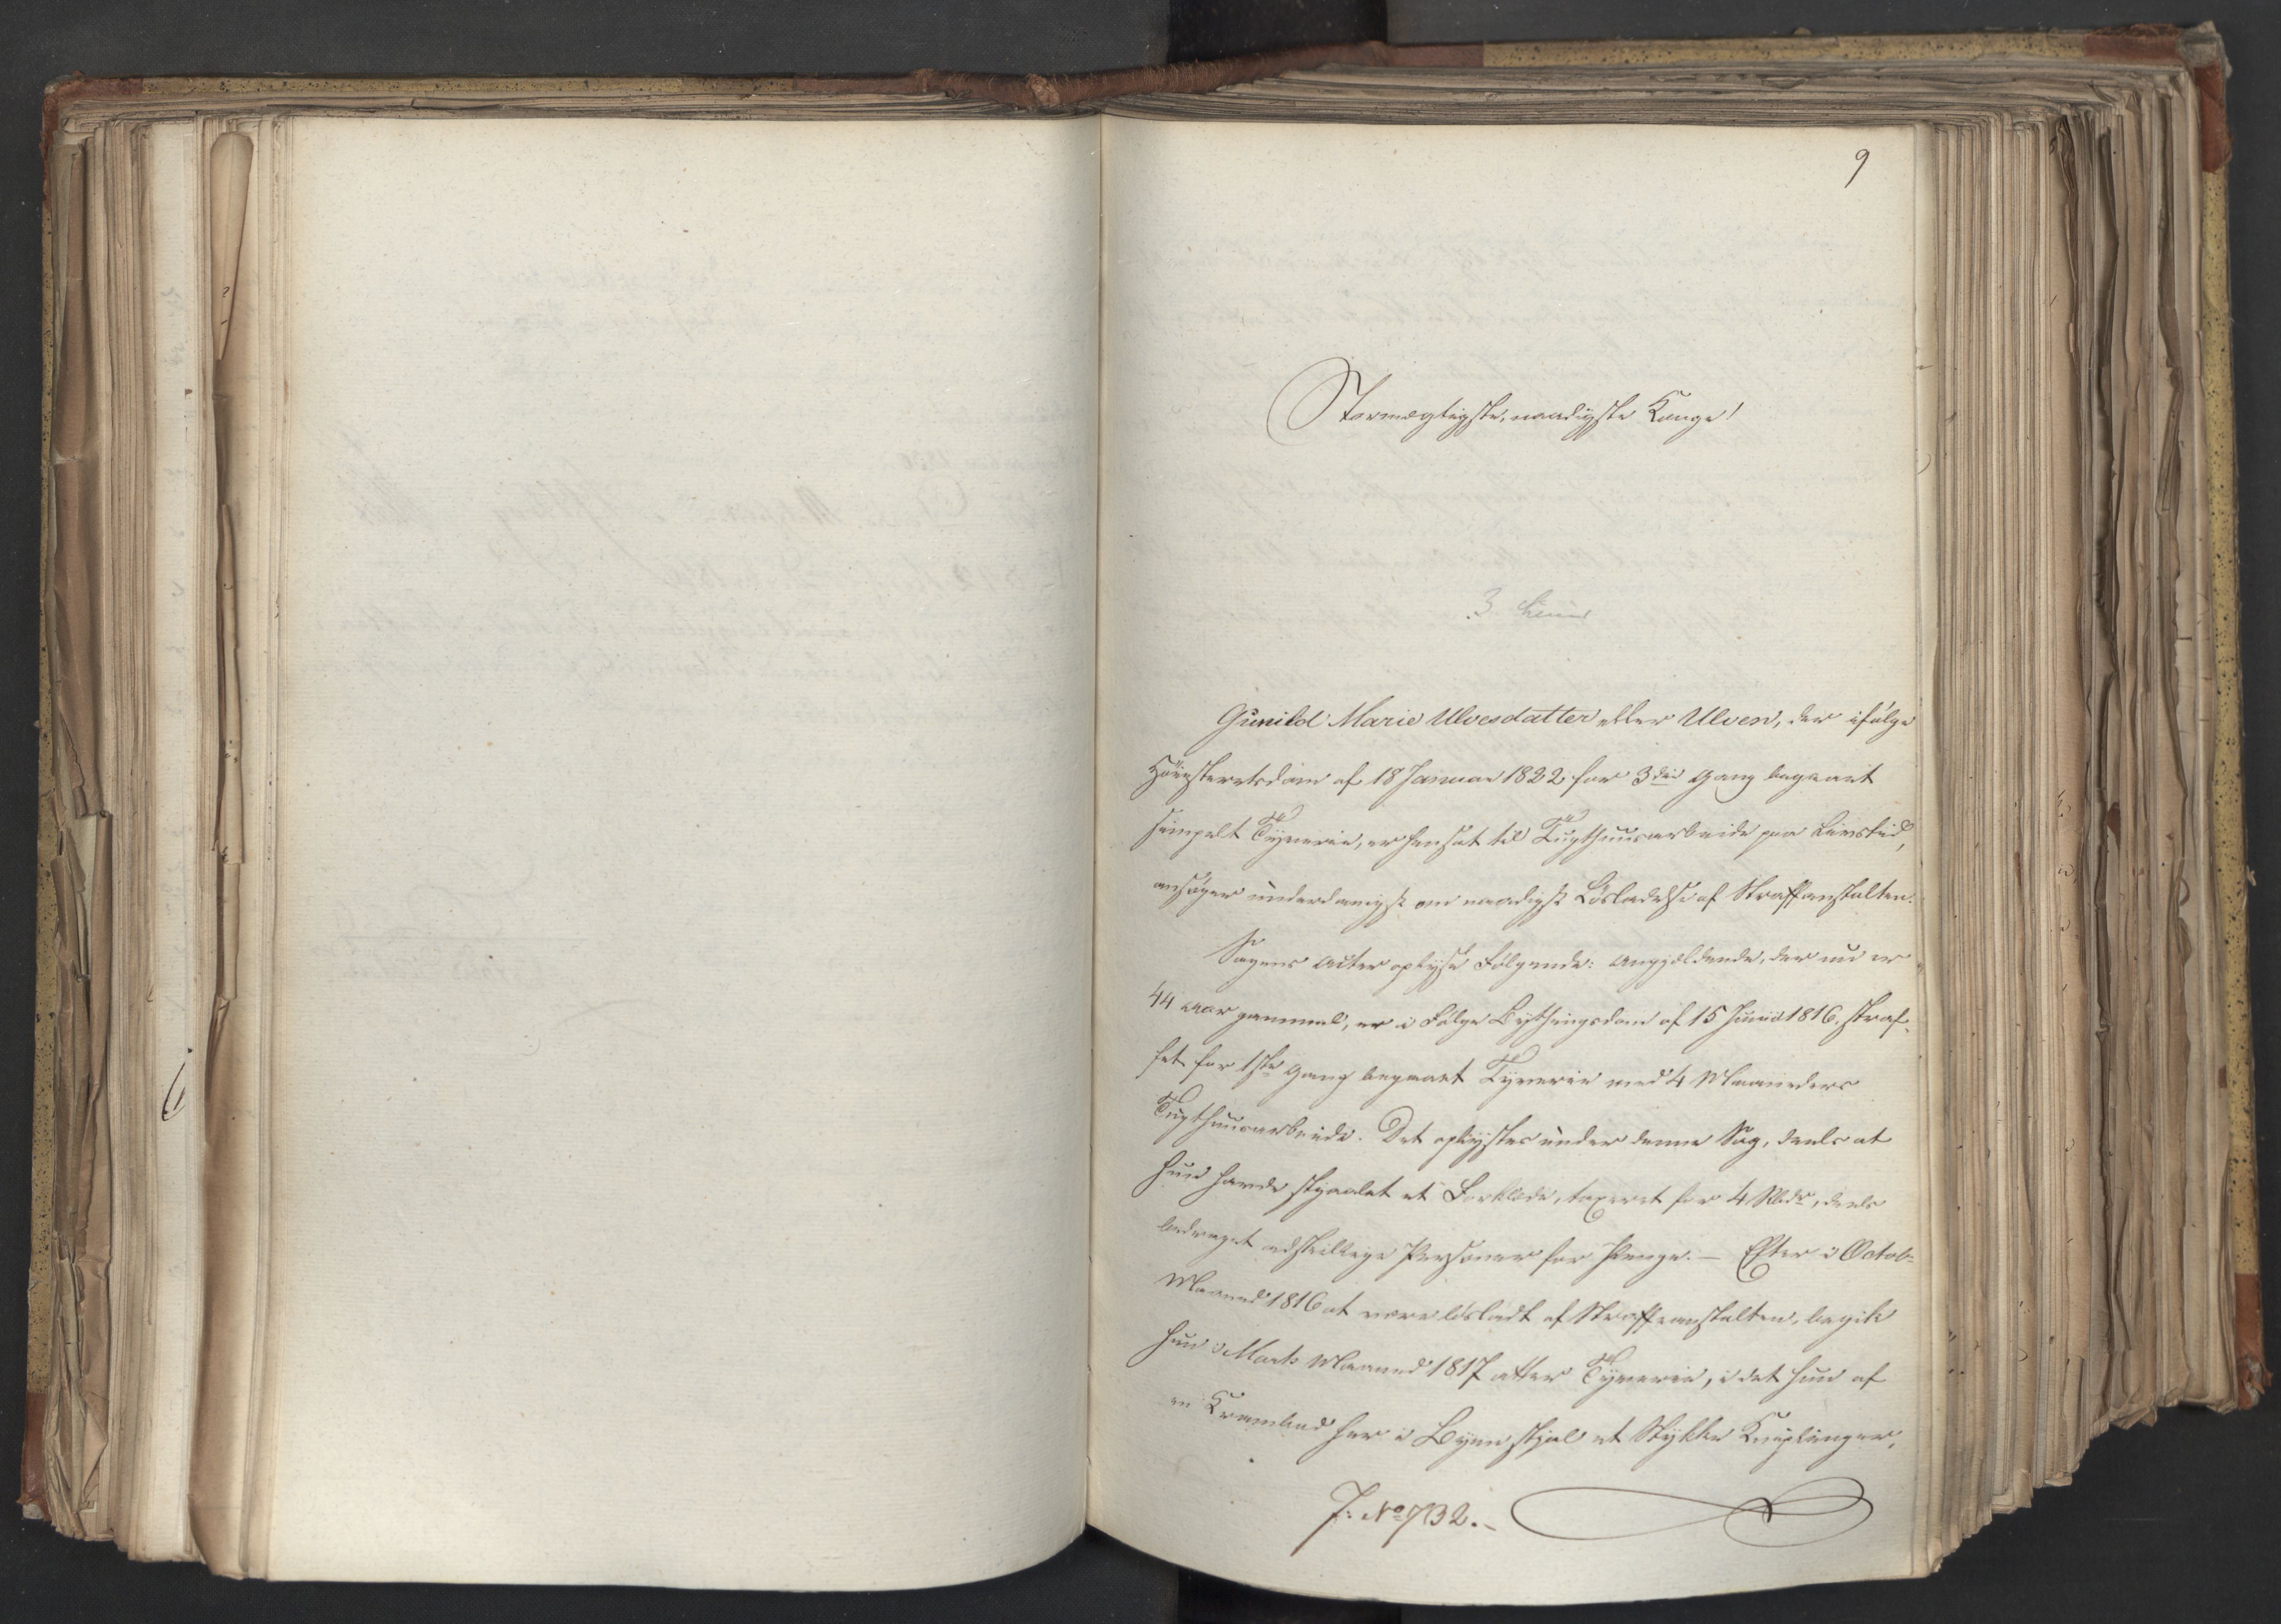 9
Stormægtigste, naadigste Konge!
Gunild Marie Ulvesdatter eller Ulven, der ifølge
Høiesteretsdom af 18 Januar 1822 for 3die Gang begaaet
simpelt Tyverie, er hensat til Tugthuusarbeide paa Livstid,
ansøger underdanigst om naadigst Løsladelse af Straffanstalten.
Sagens Acter oplyse Følgende: Angjældende, der nu er
44 Aar gammel, er i Følge Bythingsdom af 15 Junii 1816, straf-
fet for 1ste Gang begaaet Tyverie med 4 Maaneders
Tugthuusarbeide. Det oplystes under denne Sag, deels at
hun havde stjaalet et Forklæde, taxeret for 4 Rbdr, deels
bedraget adskillige Personer for Penge. – Efter i Octobr
Maaned 1816 at være løsladt af Straffeanstalten, begik
hun i Marts Maaned 1817 atter Tyverie, i det hun af
en Krambod her i Byen stjal et Stykke Kniplinger,
J: No 732.-